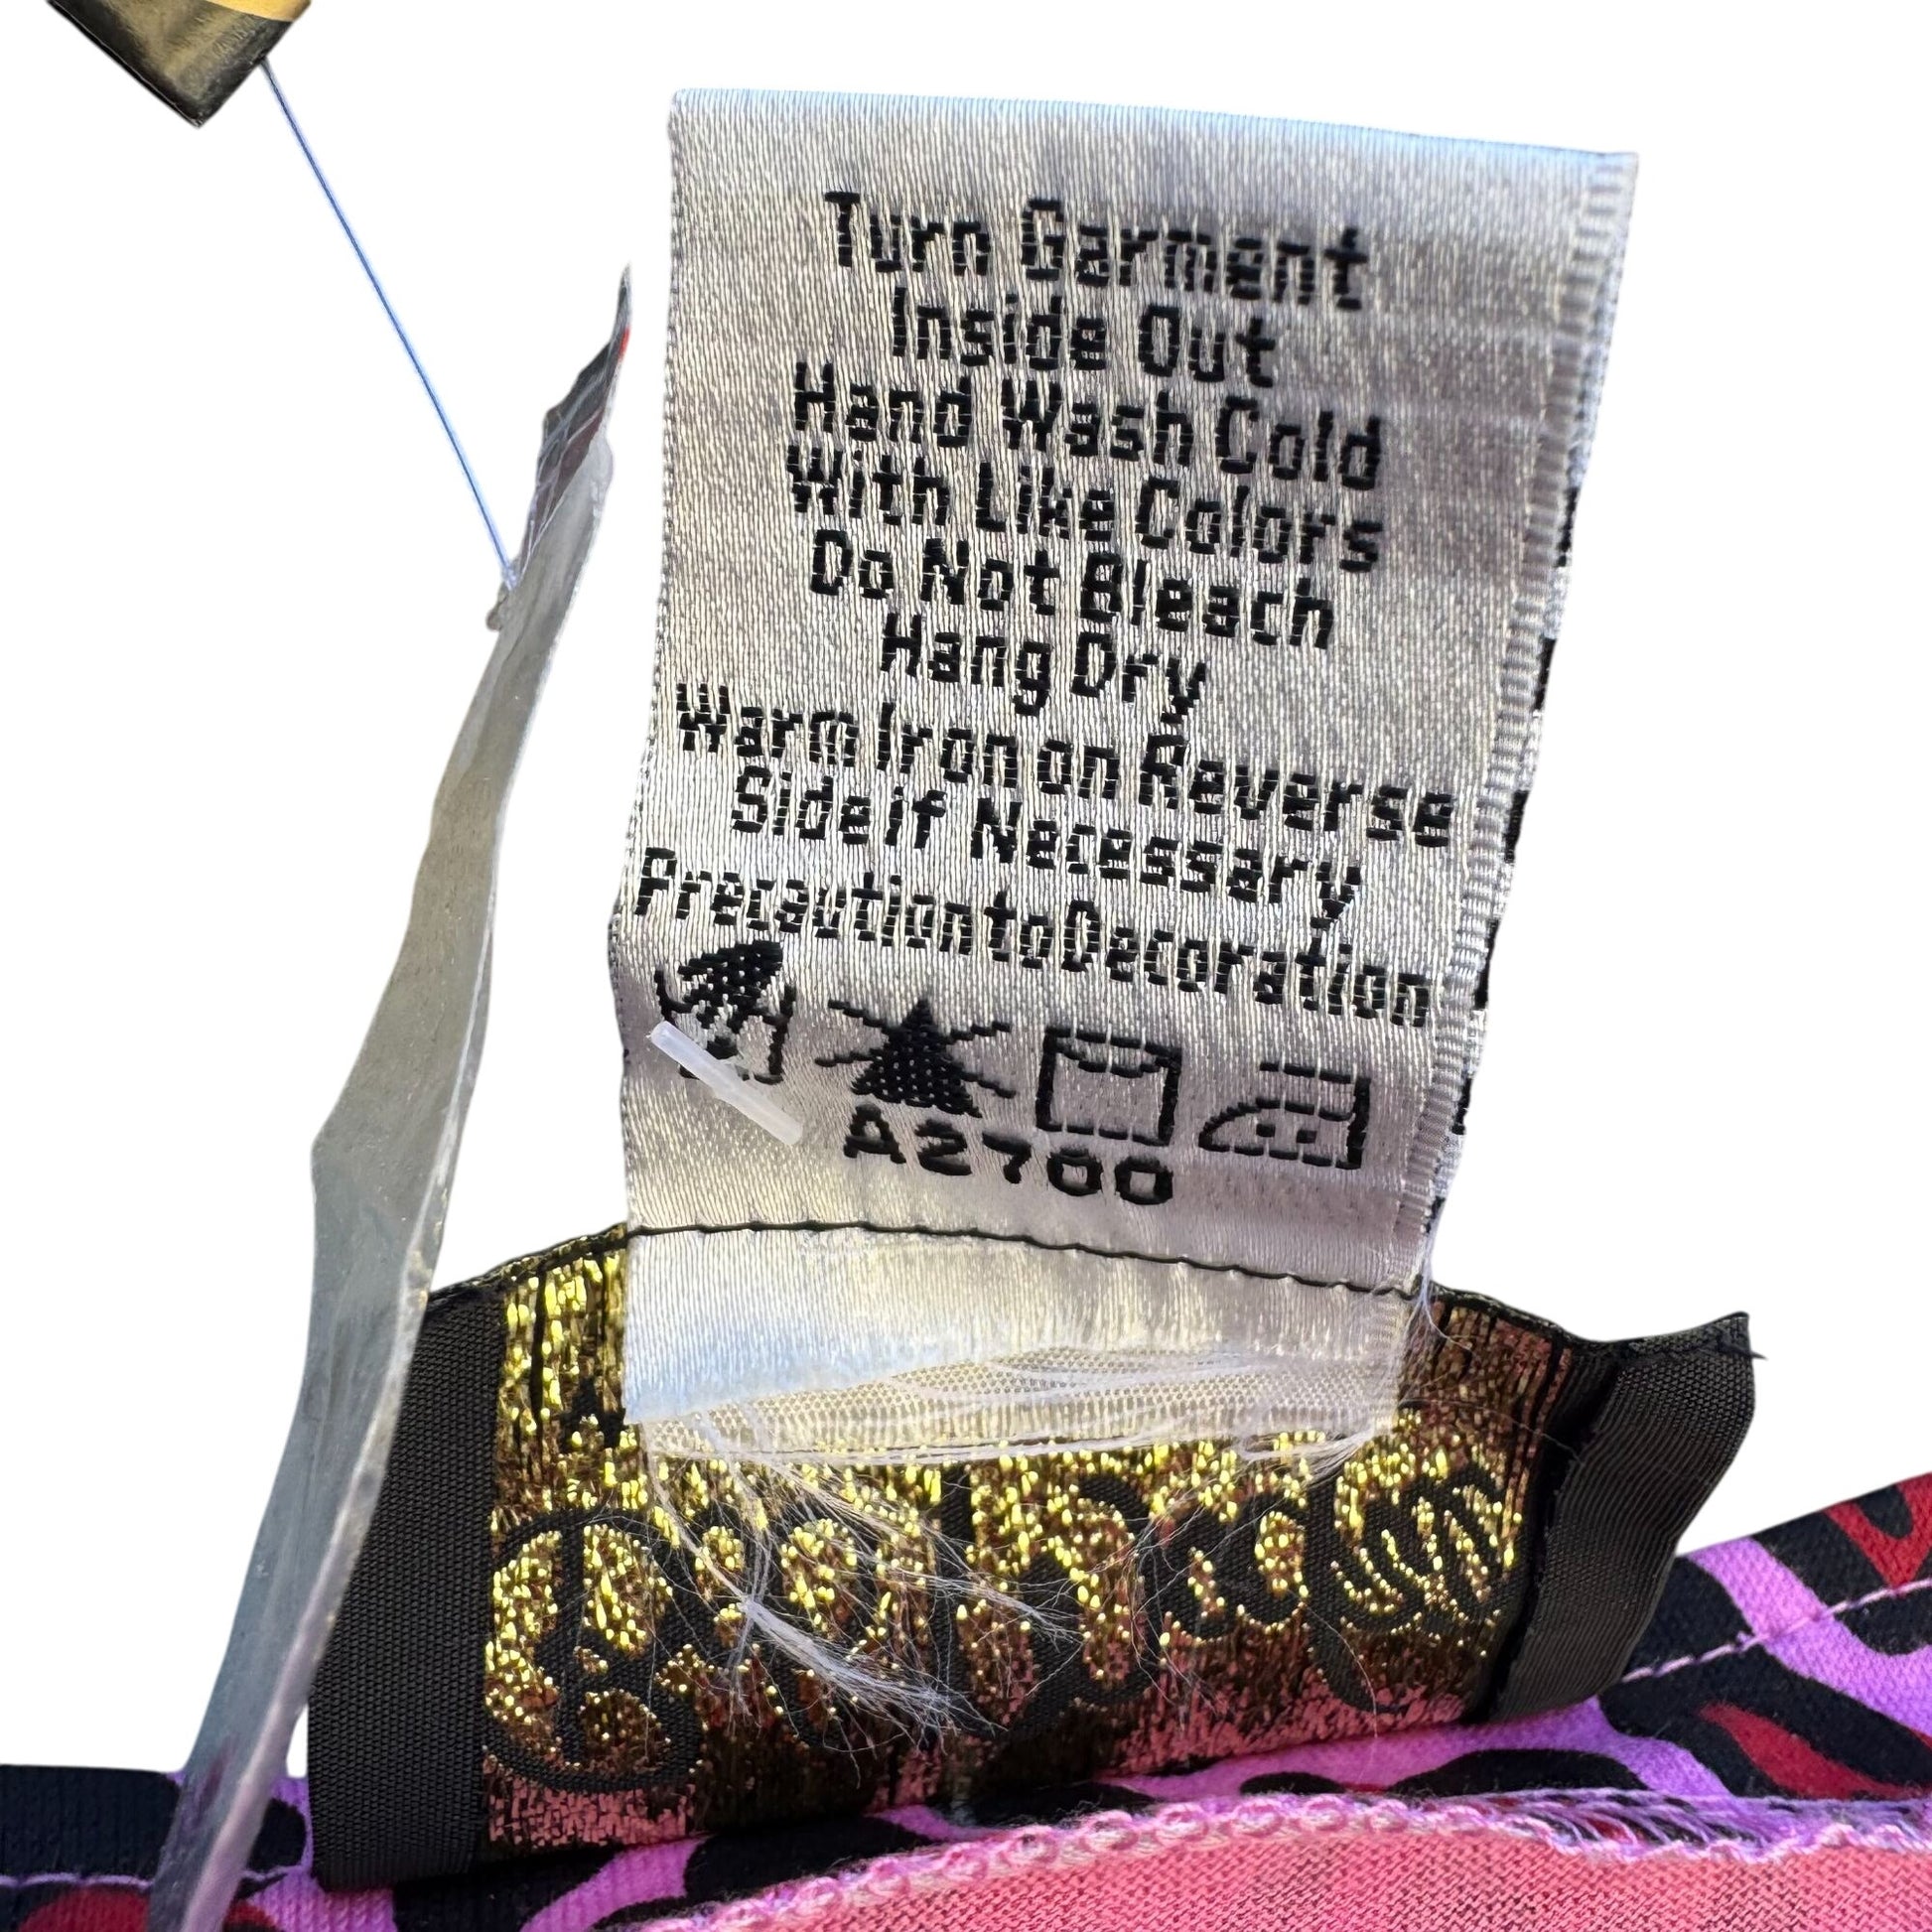 Turn Garment
Inside Out
Hand Wash Cold
With Like Colors
Do Not Bleach
Hang Dry
Warm Iron on Reverse
Side if Necessary
Precaution to Decoration
A2700